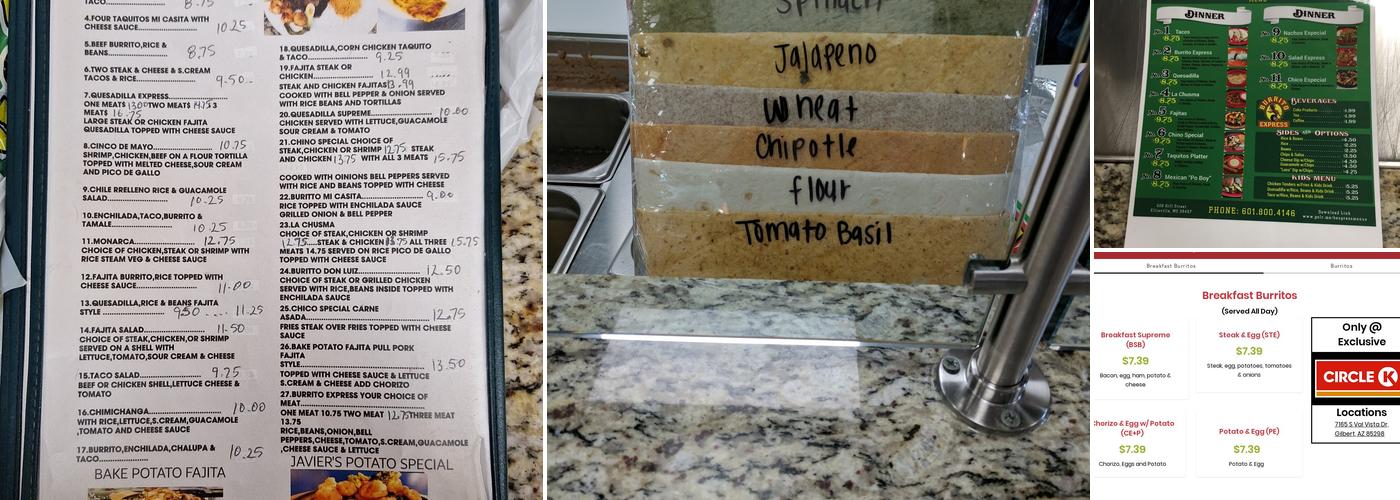 TACO.................. 8.75
4.FOUR TAQUITOS MI CASITA WITH
CHEESE SAUCE.................. 10.25
5.BEEF BURRITO,RICE &
BEANS.................. 8.75
6.TWO STEAK & CHEESE & S.CREAM
TACOS & RICE.................. 9.50
7.QUESADILLA EXPRESS..................
ONE MEATS 13.00 TWO MEATS 14.75 3
MEATS 16.75
LARGE STEAK OR CHICKEN FAJITA
QUESADILLA TOPPED WITH CHEESE SAUCE
8.CINCO DE MAYO.................. 10.75
SHRIMP,CHICKEN,BEEF ON A FLOUR TORTILLA
TOPPED WITH MELTED CHEESE,SOUR CREAM
AND PICO DE GALLO
9.CHILE RRELLENO RICE & GUACAMOLE
SALAD.................. 10.25
10.ENCHILADA,TACO,BURRITO &
TAMALE.................. 10.25
11.MONARCA.................. 12.75
CHOICE OF CHICKEN,STEAK OR SHRIMP WITH
RICE STEAM VEG & CHEESE SAUCE
12.FAJITA BURRITO,RICE TOPPED WITH
CHEESE.................. 11.00
13.QUESADILLA,RICE & BEANS FAJITA
STYLE .................. 9.50 .... 11.25
14.FAJITA SALAD.................. 11.50
CHOICE OF STEAK,CHICKEN,OR SHRIMP
SERVED ON A SHELL WITH
LETTUCE,TOMATO,SOUR CREAM & CHEESE
15.TACO SALAD.................. 9.25
BEEF OR CHICKEN SHELL,LETTUCE CHEESE &
TOMATO
16.CHIMICHANGA.................. 10.00
WITH RICE,LETTUCE,S.CREAM,GUACAMOLE
,TOMATO AND CHEESE SAUCE
17.BURRITO,ENCHILADA,CHALUPA &
TACO.................. 10.25
BAKE POTATO FAJITA
18.QUESADILLA,CORN CHICKEN TAQUITO
& TACO.................. 9.25
19.FAJITA STEAK OR
CHICKEN.................. 12.99
STEAK AND CHICKEN FAJITAS 13.99
COOKED WITH BELL PEPPER & ONION SERVED
WITH RICE BEANS AND TORTILLAS
20.QUESADILLA SUPREME.................. 10.00
CHICKEN SERVED WITH LETTUCE,GUACAMOLE
SOUR CREAM & TOMATO
21.CHINO SPECIAL CHOICE OF
STEAK,CHICKEN OR SHRIMP 12.75 STEAK
AND CHICKEN 13.75 WITH ALL 3 MEATS 15.75
COOKED WITH OINIONS BELL PEPPERS SERVED
WITH RICE AND BEANS TOPPED WITH CHEESE
22.BURRITO MI CASITA.................. 9.00
RICE TOPPED WITH ENCHILADA SAUCE
GRILLED ONION & BELL PEPPER
23.LA CHUSMA
CHOICE OF STEAK,CHICKEN OR SHRIMP
12.75.....STEAK & CHICKEN 13.75 ALL THREE 15.75
MEATS 14.75 SERVED ON RICE PICO DE GALLO
TOPPED WITH CHEESE
24.BURRITO DON LUIZ.................. 12.50
CHOICE OF STEAK OR GRILLED CHICKEN
SERVED WITH RICE,BEANS INSIDE TOPPED WITH
ENCHILADA SAUCE
25.CHICO SPECIAL CARNE
ASADA.................. 12.75
FRIES STEAK OVER FRIES TOPPED WITH CHEESE
SAUCE
26.BAKE POTATO FAJITA PULL PORK
FAJITA
STYLE.................. 13.50
TOPPED WITH CHEESE SAUCE & LETTUCE
S.CREAM & CHEESE ADD CHORIZO
27.BURRITO EXPRESS YOUR CHOICE OF
MEAT..................
ONE MEAT 10.75 TWO MEAT 12.75 THREE MEAT
13.75
RICE,BEANS,ONION,BELL
PEPPERS,CHEESE,TOMATO,S.CREAM,GUACAMOLE
,CHEESE SAUCE & LETTUCE
JAVIER'S POTATO SPECIAL
Spinach
Jalapeno
Wheat
Chipotle
flour
Tomato Basil
DINNER
No.1 Tacos
8.75
No.2 Burrito Express
8.75
No.3 Quesadilla
8.75
No.4 La Chusma
8.75
No.5 Fajitas
9.75
No.6 Chino Special
9.25
No.7 Taquitos Platter
8.75
No.8 Mexican "Po Boy"
8.75
DINNER
No.9 Nachos Especial
8.75
No.10 Salad Express
8.75
No.11 Chico Especial
8.75
BURRITO
EXPRESS
BEVERAGES
Coke Products
Tea
Coffee
SIDES and OPTIONS
Rice & Beans
Rice
Beans
Chips & Salsa
Cheese Dip w/Chips
Guacamole w/Chips
"Luna" Dip w/Chips
KIDS MENU
Chicken Tenders w/Fries & Kids Drink
Quesadilla w/Rice, Beans & Kids Drink
Taco w/Rice, Beans & Kids Drink
PHONE: 601.800.4146
Download Link
Breakfast Burritos
Burritos
Breakfast Burritos
(Served All Day)
Breakfast Supreme
(BSB)
$7.39
Bacon, egg, ham, potato &
cheese
Steak & Egg (STE)
$7.39
Steak, egg, potatoes, tomatoes
& onions
Chorizo & Egg w/ Potato
(CE+P)
$7.39
Chorizo, Eggs and Potato
Potato & Egg (PE)
$7.39
Potato & Egg
Only @
Exclusive
CIRCLE K
Locations
7165 S Val Vista Dr,
Gilbert, AZ 85298